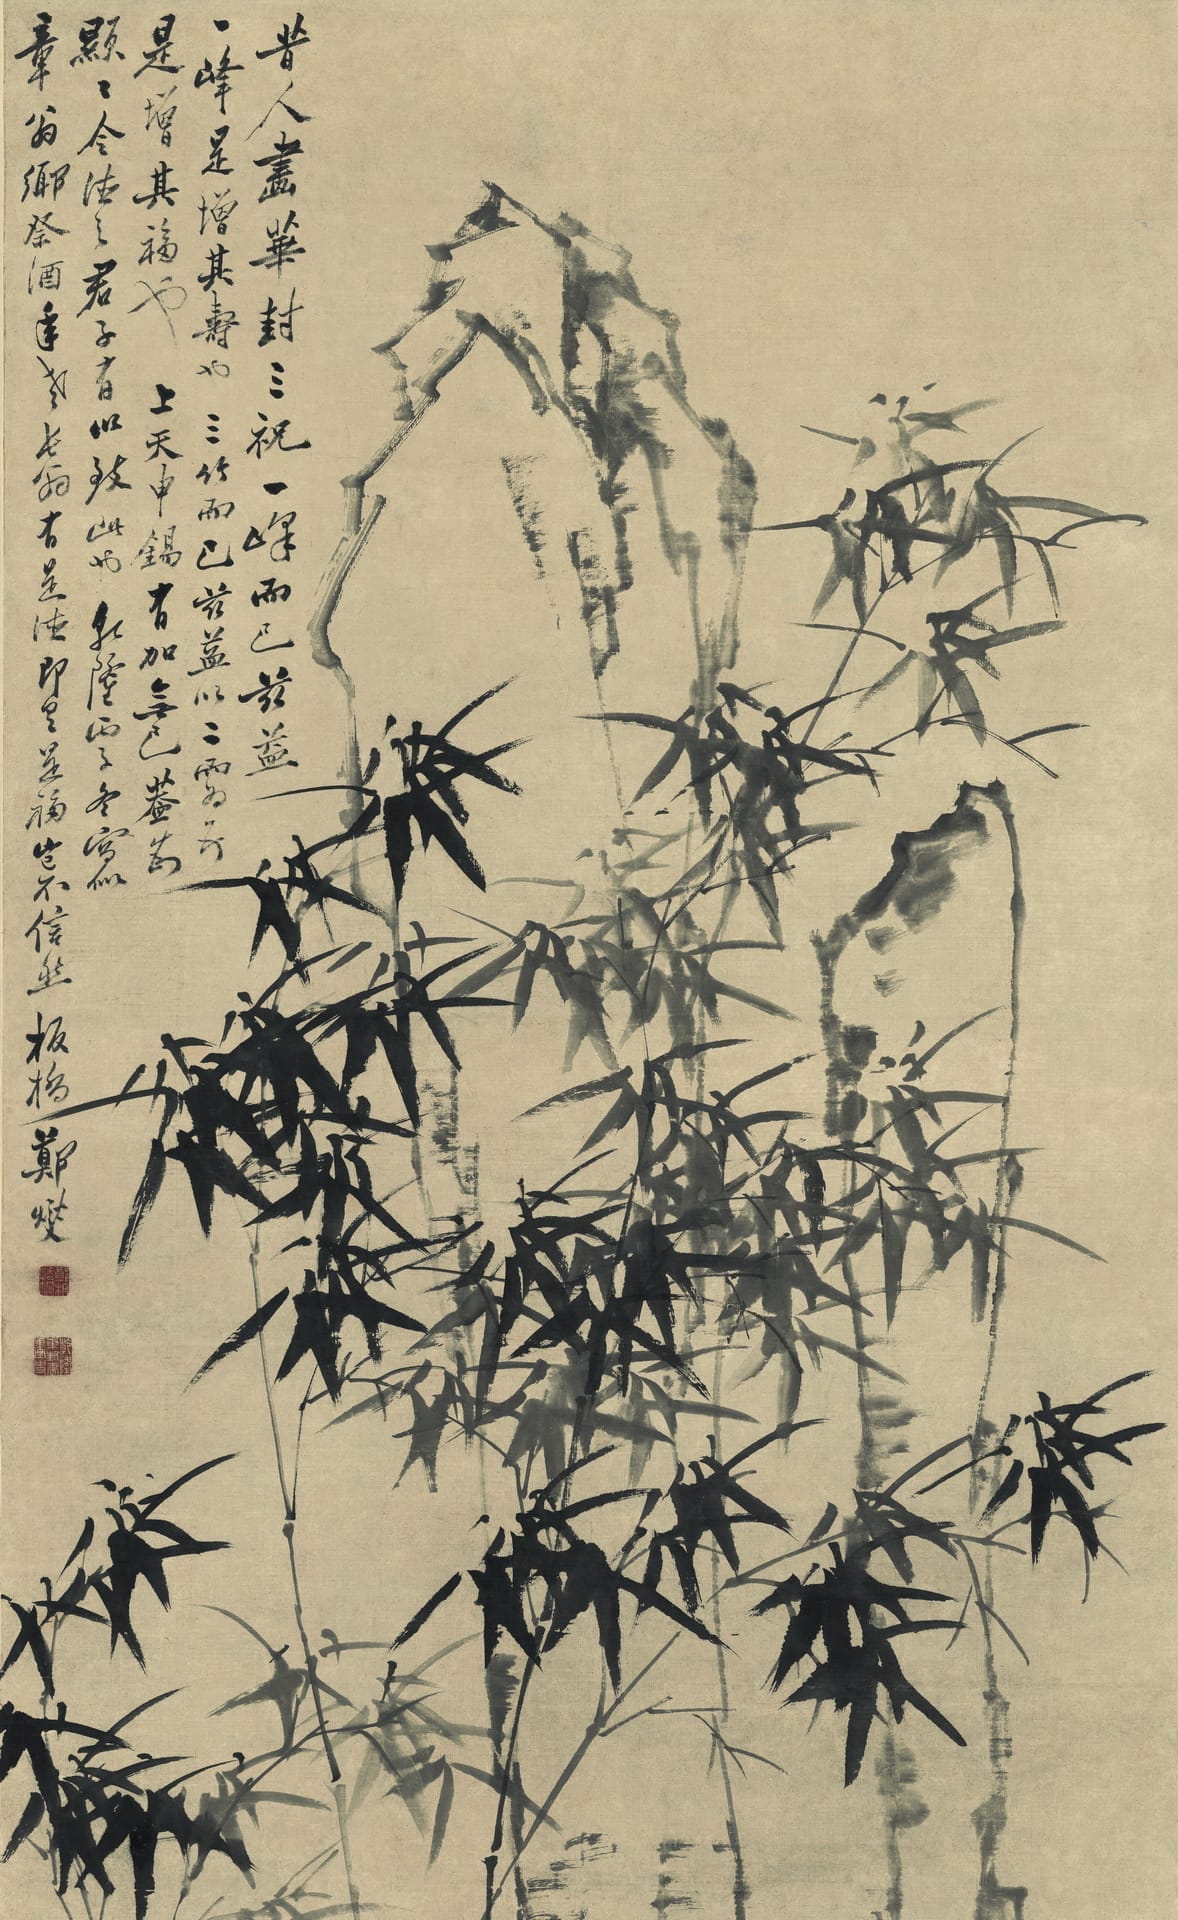 昔人畫華封三祝一峰而已茲益
一峰是增其壽也三竹而已茲益以二兩為五
是增其福也上天申錫有加無已蓋為
顯顯令德之君子有以致此也乾隆丙子冬寫似
章翁鄉祭酒年老長翁有是德即有是福豈不信然 板橋鄭燮